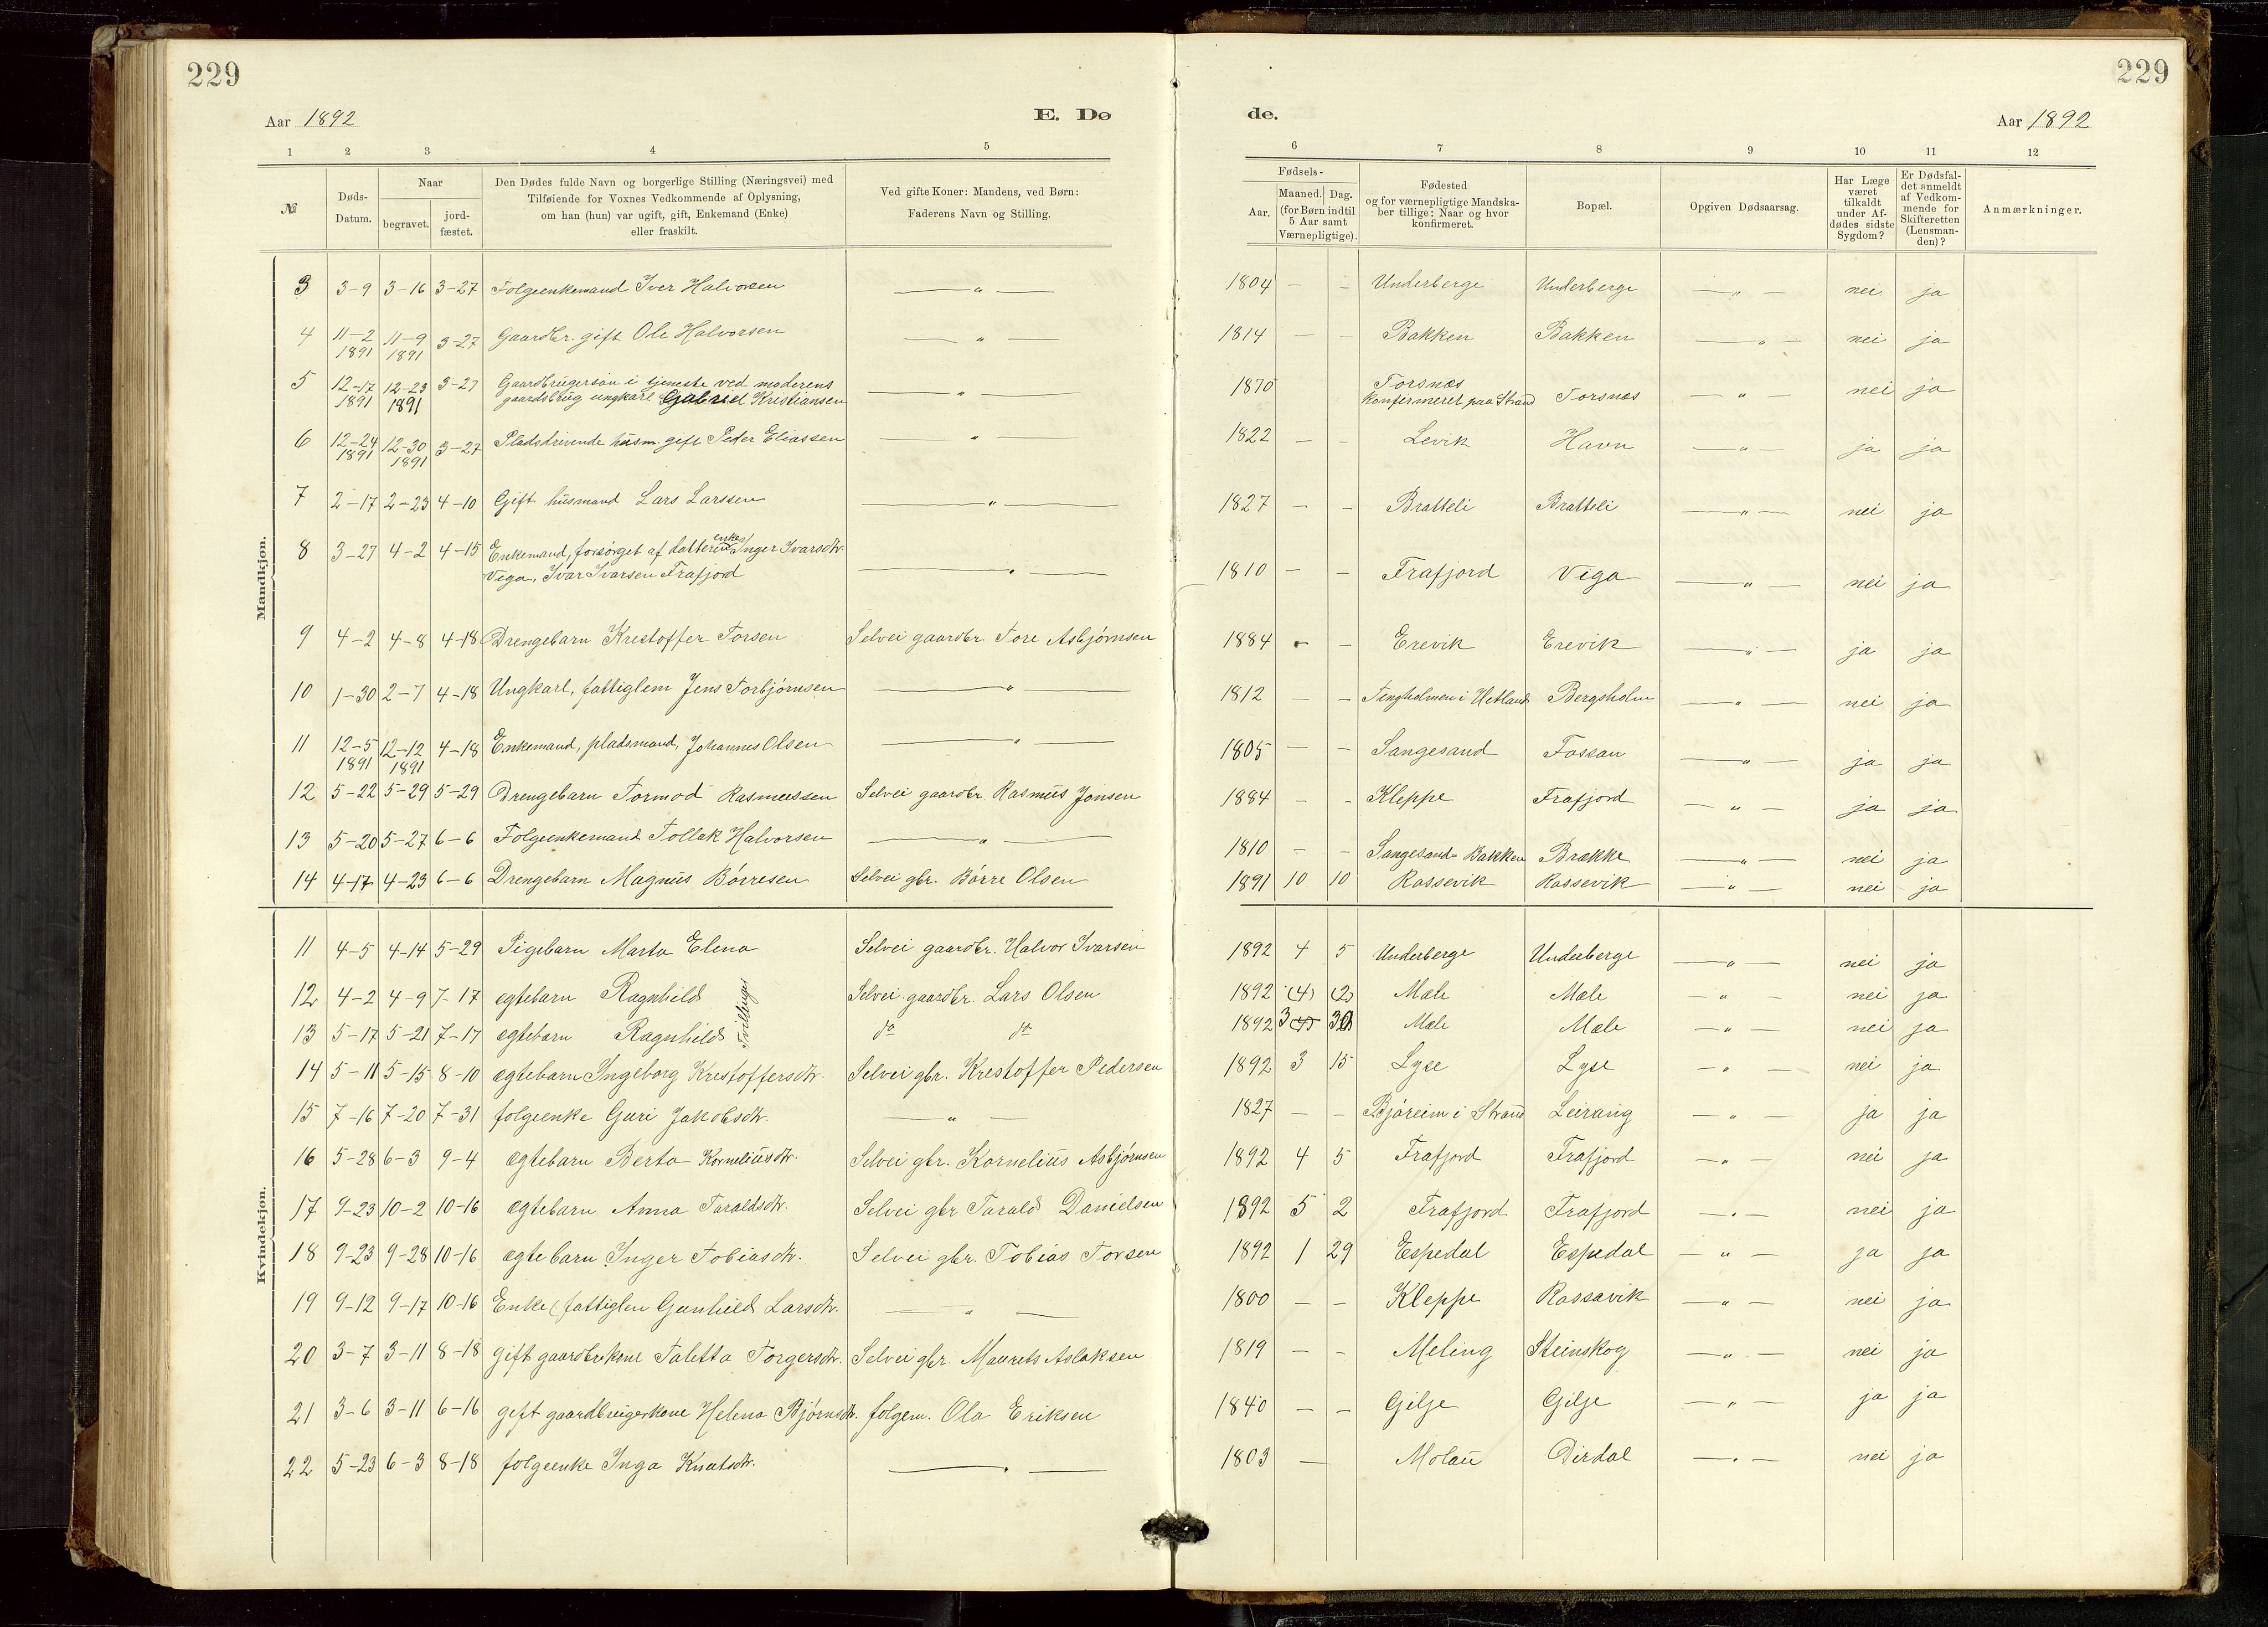 229
229
Aar 1892
E. Dø
de.
Aar 1892
1 2 3 4 5 6 7 8 9 10 11 12
№
Døds-
Datum.
Naar
begravet.
jord-
fæstet.
Den Dødes fulde Navn og borgerlige Stilling (Næringsvei) med
Tilføiende for Voxnes Vedkommende af Oplysning,
om han (hun) var ugift, gift, Enkemand (Enke)
eller fraskilt.
Ved gifte Koner: Mandens, ved Børn:
Faderens Navn og Stilling.
Fødsels-
Aar.
Maaned. Dag.
(for Børn indtil
5 Aar samt
Værnepligtige).
Fødested
og for værnepligtige Mandska-
ber tillige: Naar og hvor
konfirmeret.
Bopæl.
Opgiven Dødsaarsag.
Har Læge
været
tilkaldt
under Af-
dødes sidste
Sygdom?
Er Dødsfal-
det anmeldt
af Vedkom-
mende for
Skifteretten
(Lensman-
den)?
Anmærkninger.
Mandkjøn.
3 3-9 3-16 3-27 Folgeenkemand Iver Halvorsen — " — 1804 — — Underberge Underberge — " — nei ja
4 11-2 1891 11-9 1891 3-27 Gaardbr. gift Ole Halvorsen — " — 1814 — — Bakken Bakken — " — nei ja
5 12-17 1891 12-23 1891 3-27 Gaardbrugersøn i tjeneste ved moderens
gaardsbrug ungkarl Gabriel Kristiansen — " — 1870 Forsnes
Konfirmeret paa Strand Forsnes — " — nei ja
6 12-24 1891 12-30 1891 3-27 Pladsdrivende husm. gift Peder Eliassen — " — 1822 — — Levik Havn — " — ja ja
7 2-17 2-23 4-10 Gift husmand Lars Larssen — " — 1827 — — Bratteli Bratteli — " — nei ja
8 3-27 4-2 4-15 Enkemand, forsørget af datteren enken Inger Ivarsdtr.
Vega, Ivar Ivarsen Frafjord — " — 1810 — — Frafjord Vega — " — nei ja
9 4-2 4-8 4-18 Drengebarn Krestoffer Torsen Selvei gaardbr. Tore Asbjørnsen 1884 — — Erevik Erevik — " — ja ja
10 1-30 2-7 4-18 Ungkarl, fattiglem Jens Torbjørnsen — " — 1812 — — Tengholmen i Hetland Bergsholm — " — nei ja
11 12-5 1891 12-12 1891 4-18 Enkemand, pladsmand, Johannes Olsen — " — 1805 — — Sangesand Fossan — " — ja ja
12 5-22 5-29 5-29 Drengebarn Tormod Rasmussen Selvei gaardbr. Rasmus Jonsen 1884 — — Kleppe Frafjord — " — ja ja
13 5-20 5-27 6-6 Folgeenkemand Tollak Halvorsen — " — 1810 — — Sangesand - Bakken Brække — " — nei ja
14 4-17 4-23 6-6 Drengebarn Magnus Børresen Selvei gbr. Børre Olsen 1891 10 10 Rossevik Rossevik — " — nei ja
Kvindekjøn.
11 4-5 4-14 5-29 Pigebarn Marta Elena Selvei gaardbr. Halvor Ivarsen 1892 4 5 Underberge Underberge — " — nei ja
12 4-2 4-9 7-17 egtebarn Ragnhild Tvillinger Selvei gaardbr. Lars Olsen 1892 (4) (2) Mæle Mæle — " — nei ja
13 5-17 5-21 7-17 egtebarn Ragnhild do do 1892 3 (4) 30 Mæle Mæle — " — nei ja
14 5-11 5-15 8-10 egtebarn Ingeborg Krestoffersdtr. Selvei gbr. Krestoffer Pedersen 1892 3 15 Lyse Lyse — " — nei ja
15 7-16 7-20 7-31 folgeenke Guri Jakobsdtr. — " — 1827 — — Bjøreim i Strand Leirang — " — ja ja
16 5-28 6-3 9-4 egtebarn Berta Korneliusdtr. Selvei gbr. Kornelius Asbjørnsen 1892 4 5 Frafjord Frafjord — " — nei ja
17 9-23 10-2 10-16 egtebarn Anna Taraldsdtr. Selvei gbr Tarald Danielsen 1892 5 2 Frafjord Frafjord — " — nei ja
18 9-23 9-28 10-16 egtebarn Inger Tobiasdtr. Selvei gbr. Tobias Torsen 1892 1 29 Espedal Espedal — " — ja ja
19 9-12 9-17 10-16 Enke (fattiglem Gunhild Larsdtr. — " — 1800 — — Kleppe Rossavik — " — nei ja
20 3-7 3-11 8-18 gift gaardbr.kone Taletta Torgersdtr. Selvei gbr. Maurets Aslaksen 1819 — — Meling Steinskog — " — nei ja
21 3-6 3-11 6-16 gift gaardbrugerkone Helena Bjørnsdtr. folgem. Ola Eriksen 1840 — — Gilje Gilje — " — ja ja
22 5-23 6-3 8-18 folgeenke Inga Knutsdtr. — " — 1803 — Molau Dirdal — " — nei ja